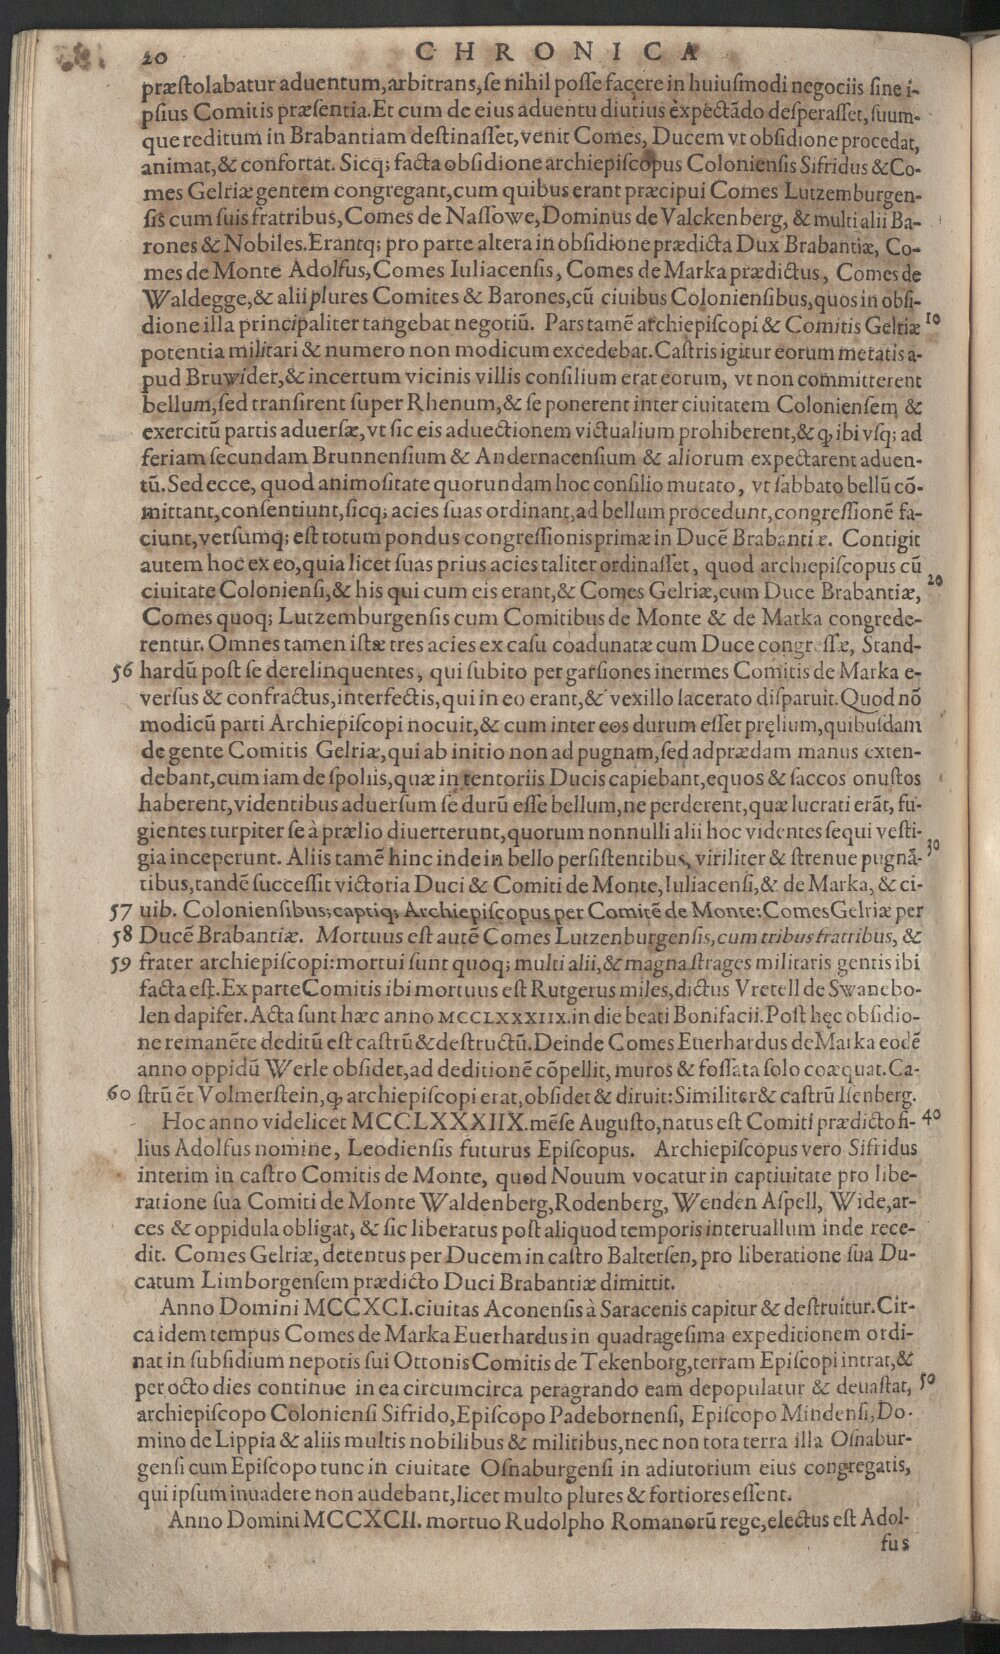 20 CHRONICA
præſtolabatur aduentum,arbitrans,ſe nihil poſſe facere in huiuſmodi negociis ſine i-
pſius Comitis præſentia.Et cum de eius aduentu diutius expectādo deſperaſſet,ſuum-
que reditum in Brabantiam deſtinaſſet,venit Comes, Ducem vt obſidione procedat,
animat,& confortat. Sicq; facta obſidione archiepiſcopus Colonienſis Sifridus & Co-
mes Gelriæ gentem congregant,cum quibus erant præcipui Comes Lutzemburgen-
ſis cum ſuis fratribus,Comes de Naſſowe,Dominus de Valckenberg, & multi alii Ba-
rones & Nobiles.Erantq; pro parte altera in obſidione prædicta Dux Brabantiæ, Co-
mes de Monte Adolfus,Comes Iuliacenſis, Comes de Marka prædictus, Comes de
Waldegge,& alii plures Comites & Barones,cū ciuibus Colonienſibus,quos in obſi-
dione illa principaliter tangebat negotiū. Pars tamē archiepiſcopi & Comitis Gelriæ 10
potentia militari & numero non modicum excedebat.Caſtris igitur eorum metatis a-
pud Bruwider,& incertum vicinis villis conſilium erat eorum, vt non committerent
bellum,ſed tranſirent ſuper Rhenum,& ſe ponerent inter ciuitatem Colonienſem &
exercitū partis aduerſæ,vt ſic eis aduectionem victualium prohiberent,& ꝙ ibi vſq; ad
feriam ſecundam Brunnenſium & Andernacenſium & aliorum expectarent aduen-
tū.Sed ecce, quod animoſitate quorundam hoc conſilio mutato, vt ſabbato bellū cō-
mittant,conſentiunt,ſicq; acies ſuas ordinant,ad bellum procedunt,congreſſionē fa-
ciunt,verſumq; eſt totum pondus congreſſionis primæ in Ducē Brabantiæ. Contigit
autem hoc ex eo,quia licet ſuas prius acies taliter ordinaſſet, quod archiepiſcopus cū
ciuitate Colonienſi,& his qui cum eis erant,& Comes Gelriæ,cum Duce Brabantiæ, 20
Comes quoq; Lutzemburgenſis cum Comitibus de Monte & de Marka congrede-
rentur. Omnes tamen iſtæ tres acies ex caſu coadunatæ cum Duce congreſſæ, Stand-
56 hardū poſt ſe derelinquentes, qui ſubito per garſiones inermes Comitis de Marka e-
verſus & confractus,interfectis,qui in eo erant,& vexillo lacerato diſparuit.Quod nō
modicū parti Archiepiſcopi nocuit,& cum inter eos durum eſſet pręlium,quibuſdam
de gente Comitis Gelriæ,qui ab initio non ad pugnam,ſed ad prædam manus exten-
debant,cum iam de ſpoliis,quæ in tentoriis Ducis capiebant,equos & ſaccos onuſtos
haberent,videntibus aduerſum ſe durū eſſe bellum,ne perderent,quæ lucrati erāt, fu-
gientes turpiter ſe à prælio diuerterunt,quorum nonnulli alii hoc videntes ſequi veſti-
gia inceperunt. Aliis tamē hinc inde in bello perſiſtentibus, viriliter & ſtrenue pugnā- 30
tibus,tandē ſucceſſit victoria Duci & Comiti de Monte,Iuliacenſi,& de Marka, & ci-
57 uib. Colonienſibus;captiq; Archiepiſcopus per Comitē de Monte:Comes Gelriæ per
58 Ducē Brabantiæ. Mortuus eſt autē Comes Lutzenburgenſis,cum tribus fratribus, &
59 frater archiepiſcopi:mortui ſunt quoq; multi alii,& magna ſtrages militaris gentis ibi
facta eſt.Ex parte Comitis ibi mortuus eſt Rutgerus miles,dictus Vretell de Swanebo-
len dapifer.Acta ſunt hæc anno MCCLXXXIIX.in die beati Bonifacii.Poſt hęc obſidio-
ne remanēte deditū eſt caſtrū & deſtructū.Deinde Comes Euerhardus de Marka eodē
anno oppidū Werle obſidet,ad deditionē cōpellit, muros & foſſata ſolo coæquat.Ca-
60 ſtrū ēt Volmerſtein,ꝙ archiepiſcopi erat,obſidet & diruit:Similiter & caſtrū Iſenberg.
Hoc anno videlicet MCCLXXXIIX.mēſe Auguſto,natus eſt Comiti prædicto fi- 40
lius Adolfus nomine, Leodienſis futurus Epiſcopus. Archiepiſcopus vero Sifridus
interim in caſtro Comitis de Monte, quod Nouum vocatur in captiuitate pro libe-
ratione ſua Comiti de Monte Waldenberg,Rodenberg, Wenden Aſpell, Wide,ar-
ces & oppidula obligat, & ſic liberatus poſt aliquod temporis interuallum inde rece-
dit. Comes Gelriæ, detentus per Ducem in caſtro Balterſen, pro liberatione ſua Du-
catum Limborgenſem prædicto Duci Brabantiæ dimittit.
Anno Domini MCCXCI.ciuitas Aconenſis à Saracenis capitur & deſtruitur.Cir-
ca idem tempus Comes de Marka Euerhardus in quadrageſima expeditionem ordi-
nat in ſubſidium nepotis ſui Ottonis Comitis de Tekenborg,terram Epiſcopi intrat,&
per octo dies continue in ea circumcirca peragrando eam depopulatur & deuaſtat, 50
archiepiſcopo Colonienſi Sifrido,Epiſcopo Padebornenſi, Epiſcopo Mindenſi,Do-
mino de Lippia & aliis multis nobilibus & militibus,nec non tota terra illa Oſnabur-
genſi cum Epiſcopo tunc in ciuitate Oſnaburgenſi in adiutorium eius congregatis,
qui ipſum inuadere non audebant,licet multo plures & fortiores eſſent.
Anno Domini MCCXCII. mortuo Rudolpho Romanorū rege,electus eſt Adol-
fus